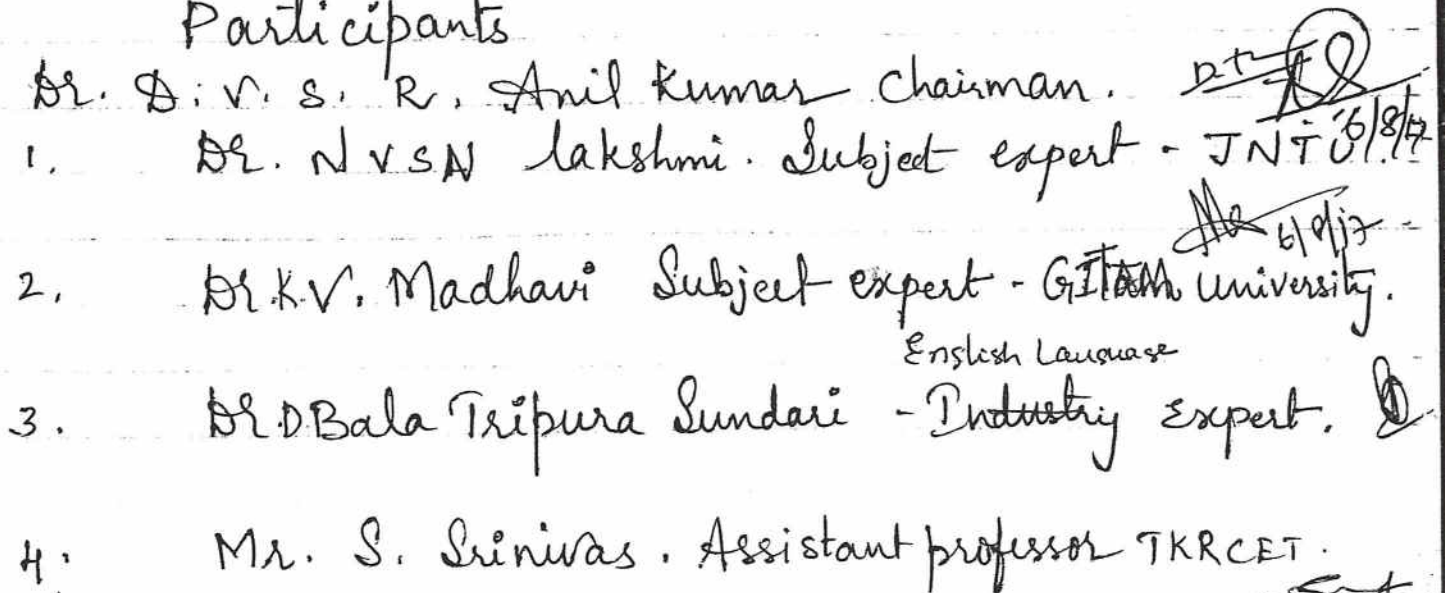 Participants
Dr. D. V. S. R. Anil Kumar Chairman.
1. Dr. N V S N lakshmi. Subject expert - JNTU
6/8/17
2. Dr. K.V. Madhavi Subject expert - GITAM University.
English Language
3. Dr D Bala Tripura Sundari - Industry Expert.
4. Mr. S. Srinivas. Assistant professor TKRCET.